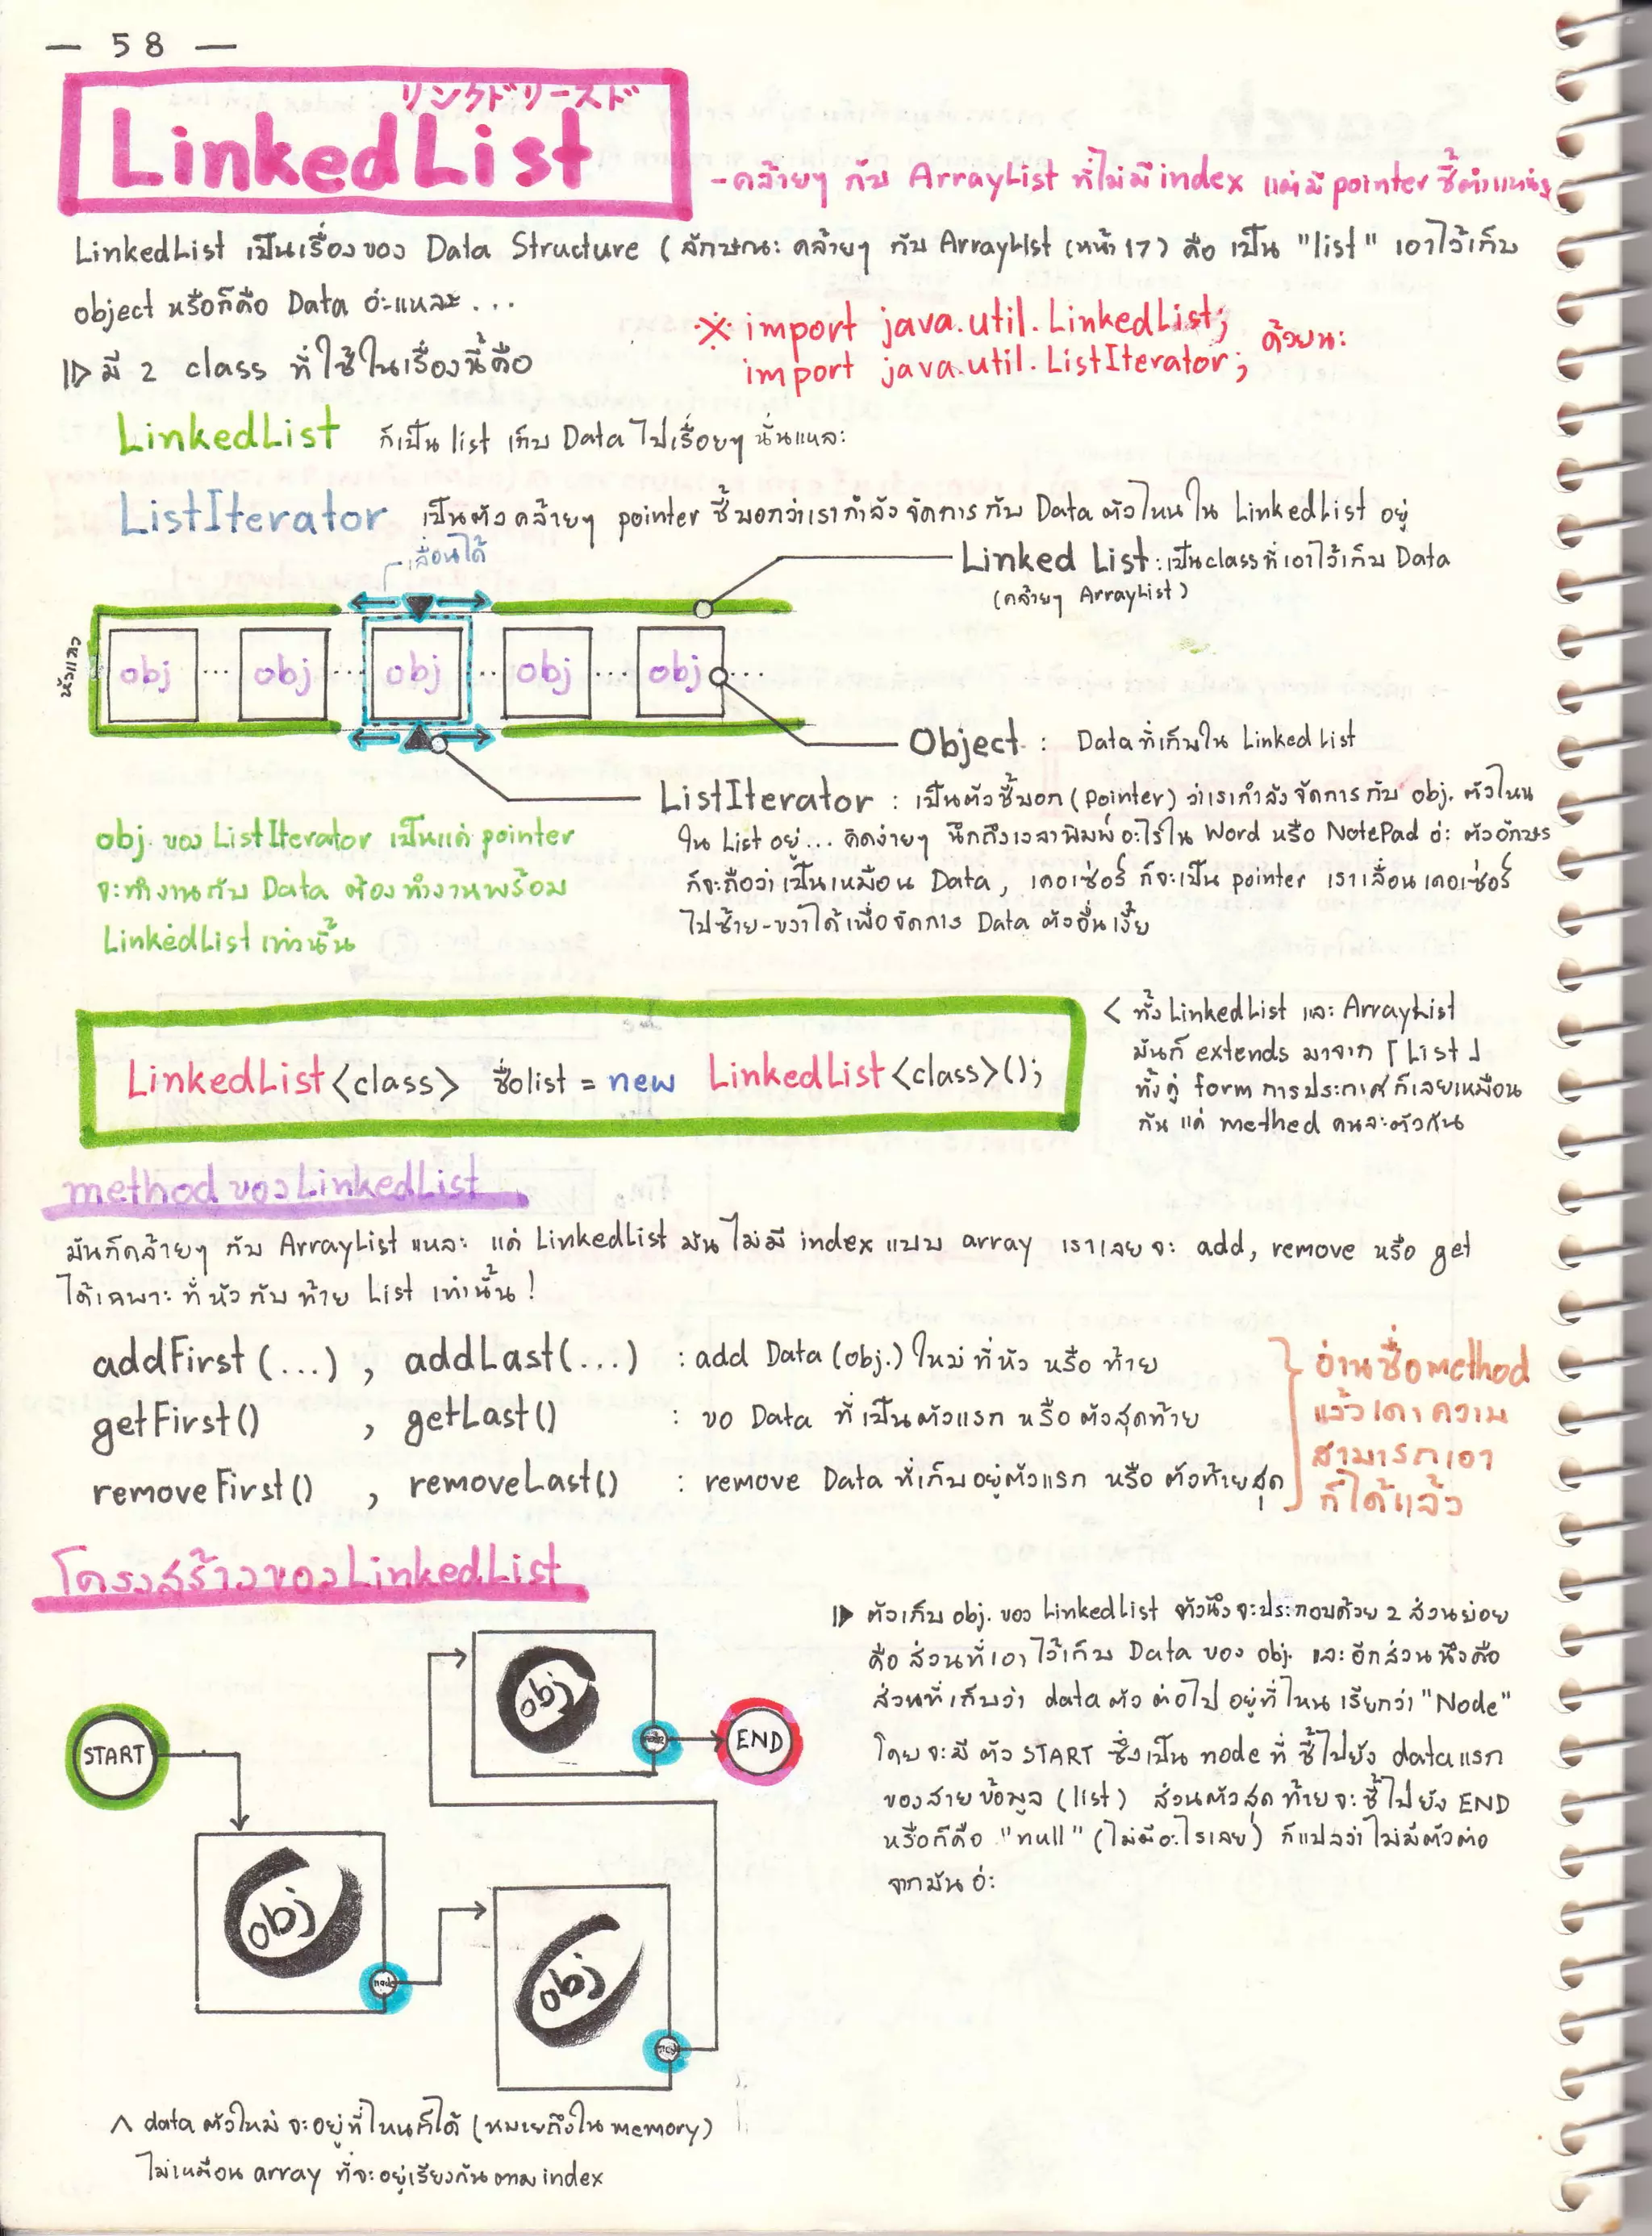 — 58 —
リンクドリースド
LinkedList
-คล้ายๆ กับ ArrayList ที่ไม่มี index แต่มี pointer ชี้ตำแหน่ง
LinkedList เป็นเรื่องของ Data Structure (ลักษณะคล้ายๆ กับ ArrayList (หน้า 17) คือ เป็น "list" เอาไว้เก็บ
object หรือก็คือ Data อ่ะแหละ...
※ import java.util.LinkedList;
import java.util.ListIterator; ด้วยนะ
▷ มี 2 class ที่ใช้ในเรื่องนี้คือ
LinkedList ก็เป็น list เก็บ Data ไปเรื่อยๆ นั่นแหละ
ListIterator เป็นตัวคล้ายๆ pointer ชี้บอกว่าเรากำลังจัดการกับ Data ตัวไหนใน LinkedList อยู่
เลื่อนได้
Linked List : เป็นclassที่เอาไว้เก็บ Data
(คล้ายๆ ArrayList)
หัวแถว
obj ... obj ... obj ... obj ... obj ...
Object : Data ที่เก็บใน Linked List
ListIterator : เป็นตัวชี้บอก (pointer) ว่าเรากำลังจัดการกับ obj. ตัวไหน
ใน List อยู่... คิดง่ายๆ นึกถึงเวลาพิมพ์อะไรใน Word หรือ NotePad อ่ะ ตัวอักษร
ก็จะถือว่าเป็นเหมือน Data, เคอเซ่อร์ ก็จะเป็น pointer เราเลื่อนเคอเซ่อร์
ไปซ้าย-ขวาได้เพื่อจัดการ Data ตัวอื่นเงี้ย
obj. ของ ListIterator เป็นแค่ pointer
จะทำงานกับ Data ต้องทำงานพร้อม
LinkedList เท่านั้น
LinkedList<class> ชื่อlist = new LinkedList<class>();
< ทั้ง LinkedList และ ArrayList
มันก็ extends มาจาก「List」
ทั้งคู่ form การประกาศก็เลยเหมือน
กัน แต่ methed คนละตัวกัน
method ของ LinkedList
มันก็คล้ายๆ กับ ArrayList แหละ แต่ LinkedList มันไม่มี index แบบ array เราเลยจะ add, remove หรือ get
ได้เฉพาะ ที่หัวกับท้าย List เท่านั้น!
addFirst(...) , addLast(...) : add Data (obj.) ใหม่ ที่หัว หรือ ท้าย
getFirst() , getLast() : ขอ Data ที่เป็นตัวแรก หรือ ตัวสุดท้าย
removeFirst() , removeLast() : remove Data ที่เก็บอยู่ตัวแรก หรือ ตัวท้ายสุด
อ่านชื่อ method
แล้วเดาความ
สามารถเอา
ก็ได้แล้ว
โครงสร้างของ LinkedList
▶ ตัวเก็บ obj. ของ LinkedList ตัวนึงจะประกอบด้วย 2 ส่วนย่อย
คือ ส่วนที่เอาไว้เก็บ Data ของ obj. และอีกส่วนนึงคือ
ส่วนที่เก็บว่า data ตัวต่อไป อยู่ที่ไหน เรียกว่า "Node"
โดยจะมี ตัว START ซึ่งเป็น node ที่ ชี้ไปยัง data แรก
ของสายข้อมูล (list) ส่วนตัวสุดท้ายจะชี้ไปยัง END
หรือก็คือ "null" (ไม่มีอะไรเลย) ก็แปลว่าไม่มีตัวต่อ
จากมันอ่ะ
obj
node
END
START
obj
node
obj
node
^ data ตัวใหม่ จะอยู่ที่ไหนก็ได้ (หมายถึงใน memory)
ไม่เหมือน array ที่จะอยู่เรียงกันตาม index